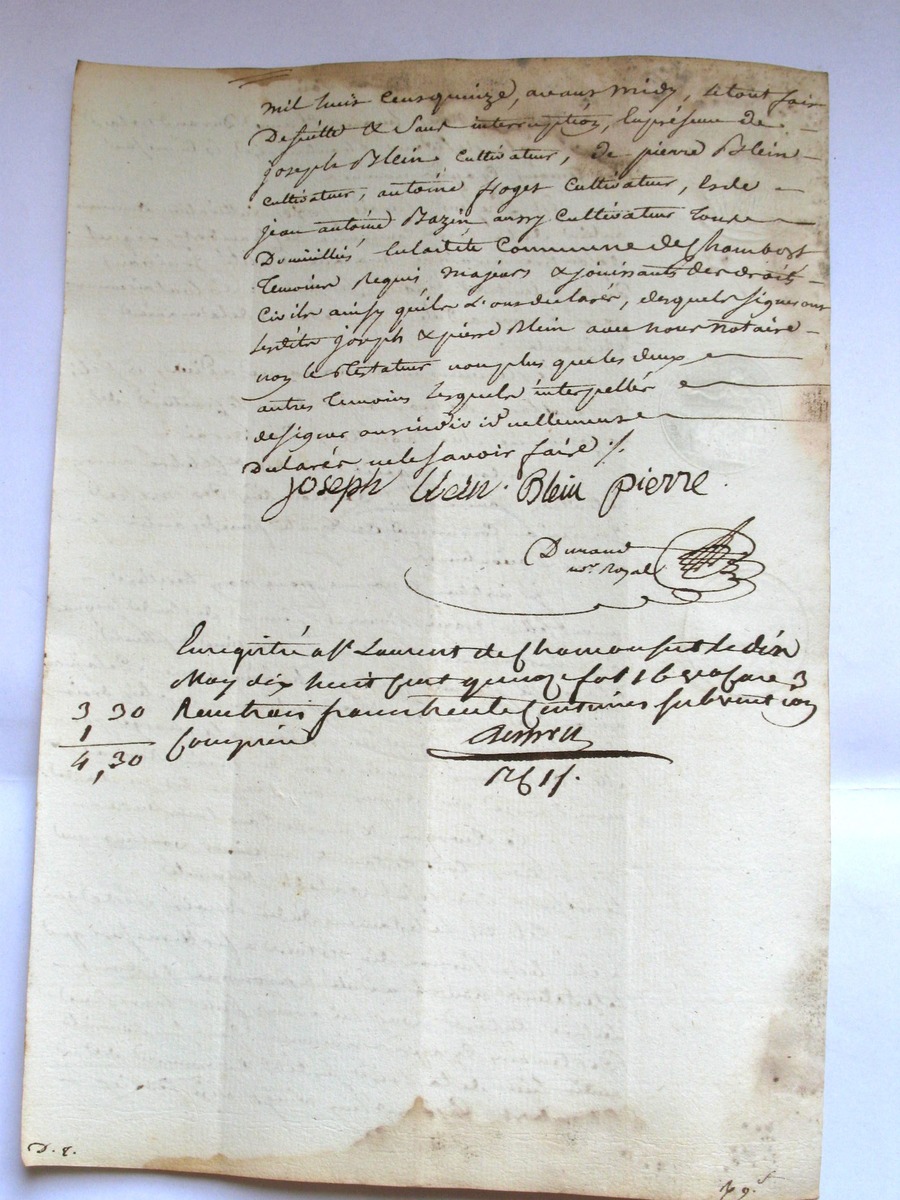 mil huit cent quinze, avant midy, le tout fait
De suitte & sans interruption, En présence de
joseph Blein cultivateur, de pierre Blein
cultivateur, antoine froget cultivateur, & de
jean antoine Bazin aussy cultivateur tous
Domiciliés En la ditte Commune de Chambost
temoins Requis majeurs & jouissants des droits
civils ainsy qu'ils L'ont declaré, desquels signes ont
lesdits joseph & pierre Blein avec nous notaire
non le testateur non plus que les deux
autres temoins lesquels interpellés
de signer ont individuellement
Declarés ne le savoir faire ./.
joseph blein . Blein pierre .
Durand
no.re Royal
Enregistré a St Laurent de Chamousset le dix
May dix huit cent quinze fol 16 case 3
3 30 Reçu trois francs trente Centimes subvention
1 Comprise
4,30
D. 8.